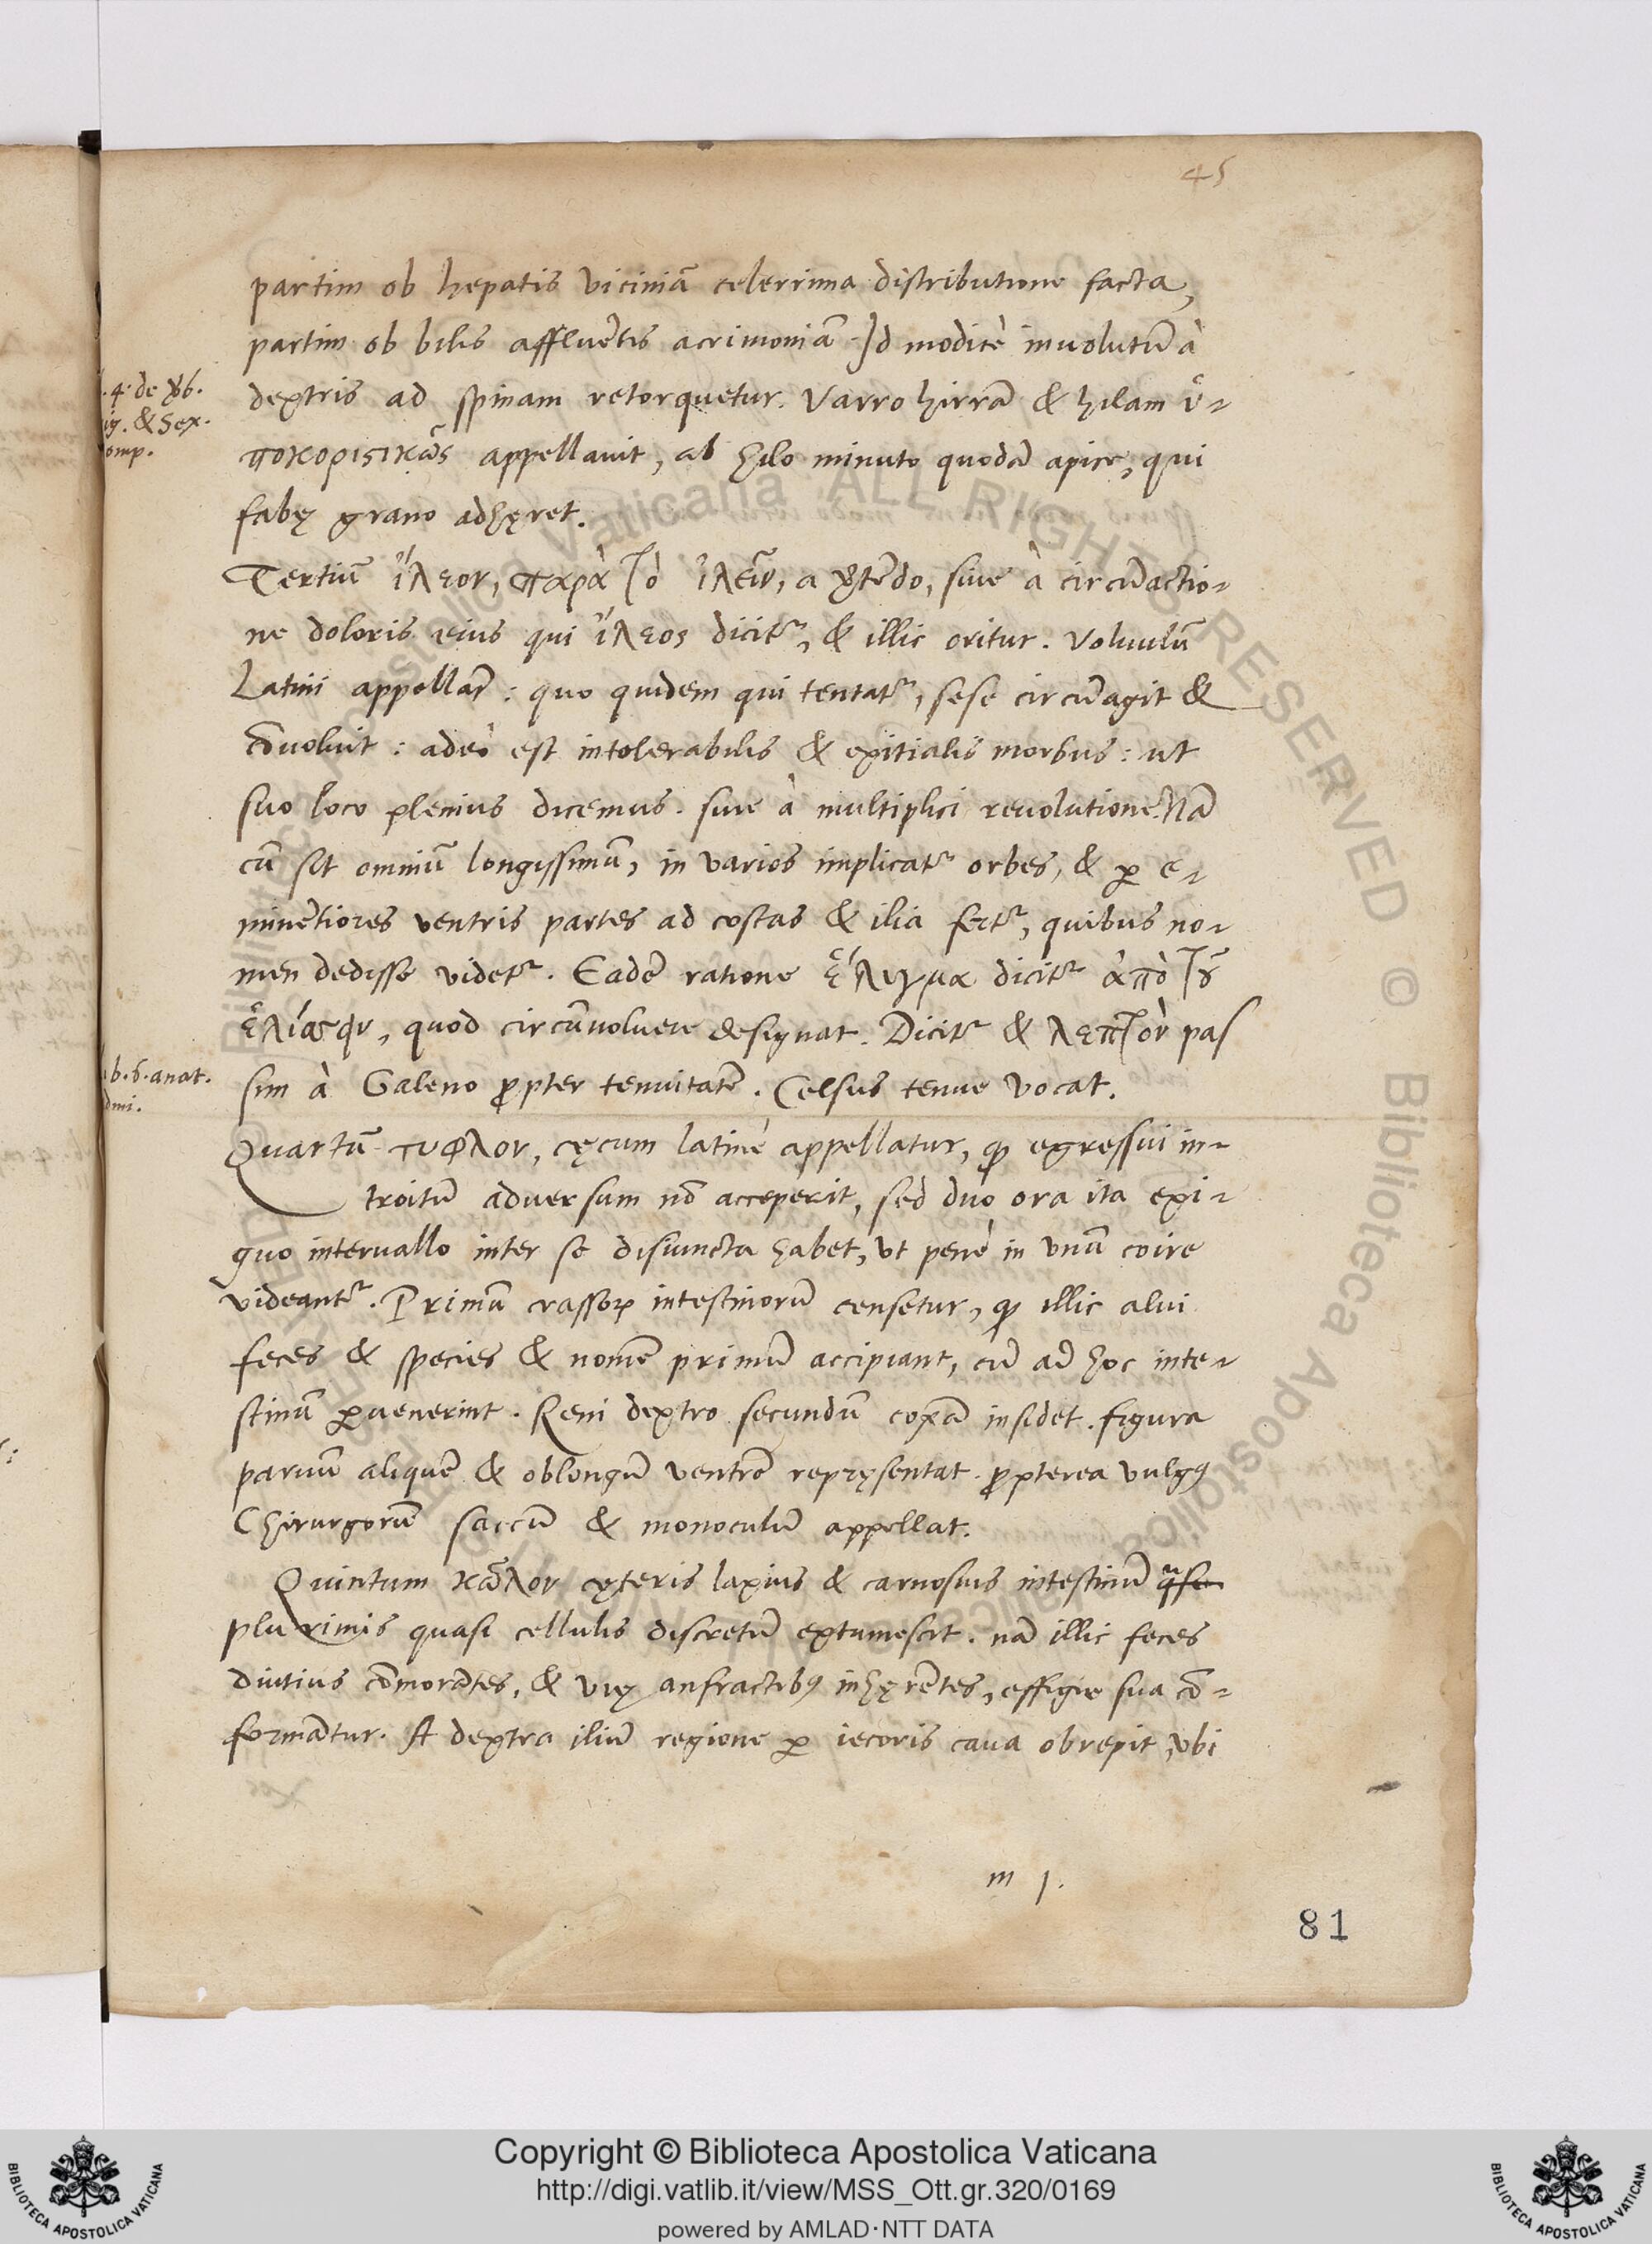 45
partim ob hepatis viciniā celerrima distributione facta,
partim ob bilis affluẽtis acrimoniā. Id modicè inuolutū à
dextris ad spinam retorquetur. Varro hirrā & hilam ὑ-
ποκοριστικῶς appellauit, ab hilo minuto quodā apice, qui
fabę grano adhęret.
Tertiū ἴλεον, παρὰ τὸ ἰλεῖν, a ỹtẽdo, siue à circũactio-
ne doloris eius qui ἴλεος dicitʳ, & illic oritur. Voluulū
Latini appellāt : quo quidem qui tentatʳ, sese circũagit &
cõuoluit : adeò est intolerabilis & exitialis morbus : ut
suo loco plenius dicemus. siue à multiplici reuolutione. Nā
cū sit omniū longissimū, in varios implicatʳ orbes, & ꝑ e-
minẽtiores ventris partes ad costas & ilia fertʳ, quibus no-
men dedisse videtʳ. Eadẽ ratione ἕλιγμα dicitʳ ἀπὸ τοῦ
ἑλίσσειν, quod circũuoluere designat. Dicitʳ & λεπτὸν pas
sim à Galeno ꝓpter tenuitatẽ. Celsus tenue vocat.
Quartū τυφλον, cęcum latinè appellatur, ꝙ egressui in-
troitũ aduersum nõ acceperit, sed duo ora ita exi-
guo interuallo inter se disiuncta habet, vt penè in vnũ coire
videantʳ. Primũ crassoꝝ intestinorũ censetur, ꝙ illic alui
feces & species & nomẽ primũ accipiant, cũ ad hoc inte-
stinũ ꝑuenerint. Reni dextro secundũ coxā insidet. figura
paruũ aliquẽ & oblongũ ventrẽ repręsentat. ꝓpterea vulgꝰ
Chirurgorũ saccũ & monoculũ appellat.
Quintum κῶλον cęteris laxius & carnosius intestinũ
plurimis quasi cellulis discretũ extumescit. nā illic feces
diutius cõmorātes, & vię anfractibꝰ inhęrẽtes, effigie sua cõ-
formātur. A dextra iliũ regione ꝑ iecoris caua obrepit, vbi
m j.
81
.4. de ỹb.
ig. & Sex.
omp.
b.6.anat.
dmi.
Copyright © Biblioteca Apostolica Vaticana
http://digi.vatlib.it/view/MSS_Ott.gr.320/0169
powered by AMLAD·NTT DATA
BIBLIOTECA APOSTOLICA VATICANA
BIBLIOTECA APOSTOLICA VATICANA